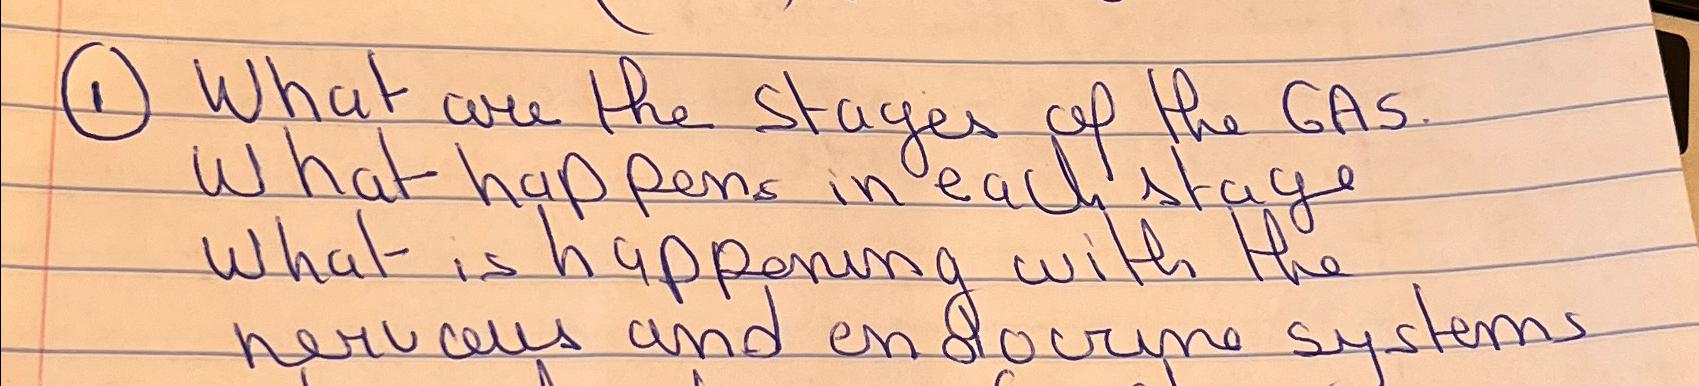 ① What are the stages of the GAS.
What happens in each stage
What is happening with the
nervous and endocrine systems